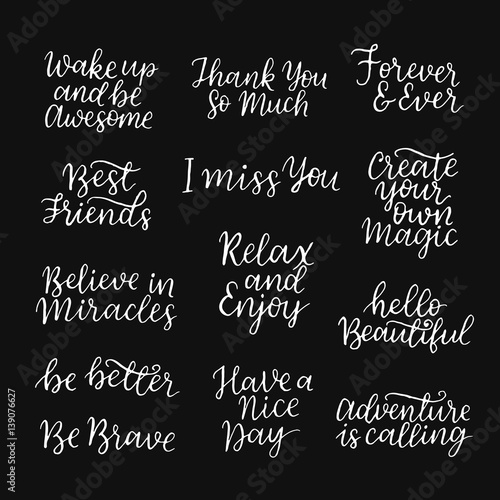 Wake up
and be
Awesome
Thank You
So Much
Forever
& Ever
Best
Friends
I miss You
Create
your
own
Magic
Believe in
Miracles
Relax
and
Enjoy
hello
Beautiful
be better
Be Brave
Have a
Nice
Day
adventure
is calling
Adobe Stock | #139076627